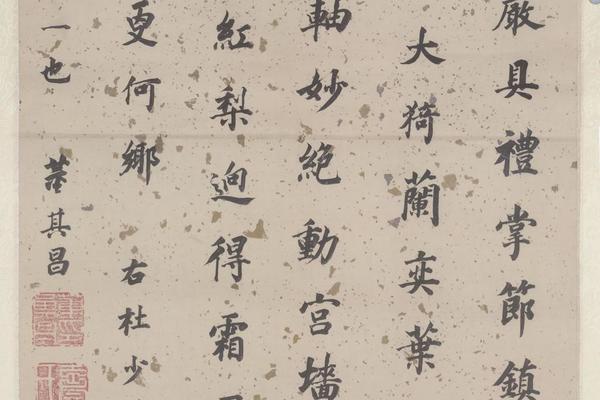 嚴具禮掌節鎮
大猗蘭奕葉
軸妙絶動宮墻
紅梨迥得霜
更何鄉 右杜少
一也 董其昌